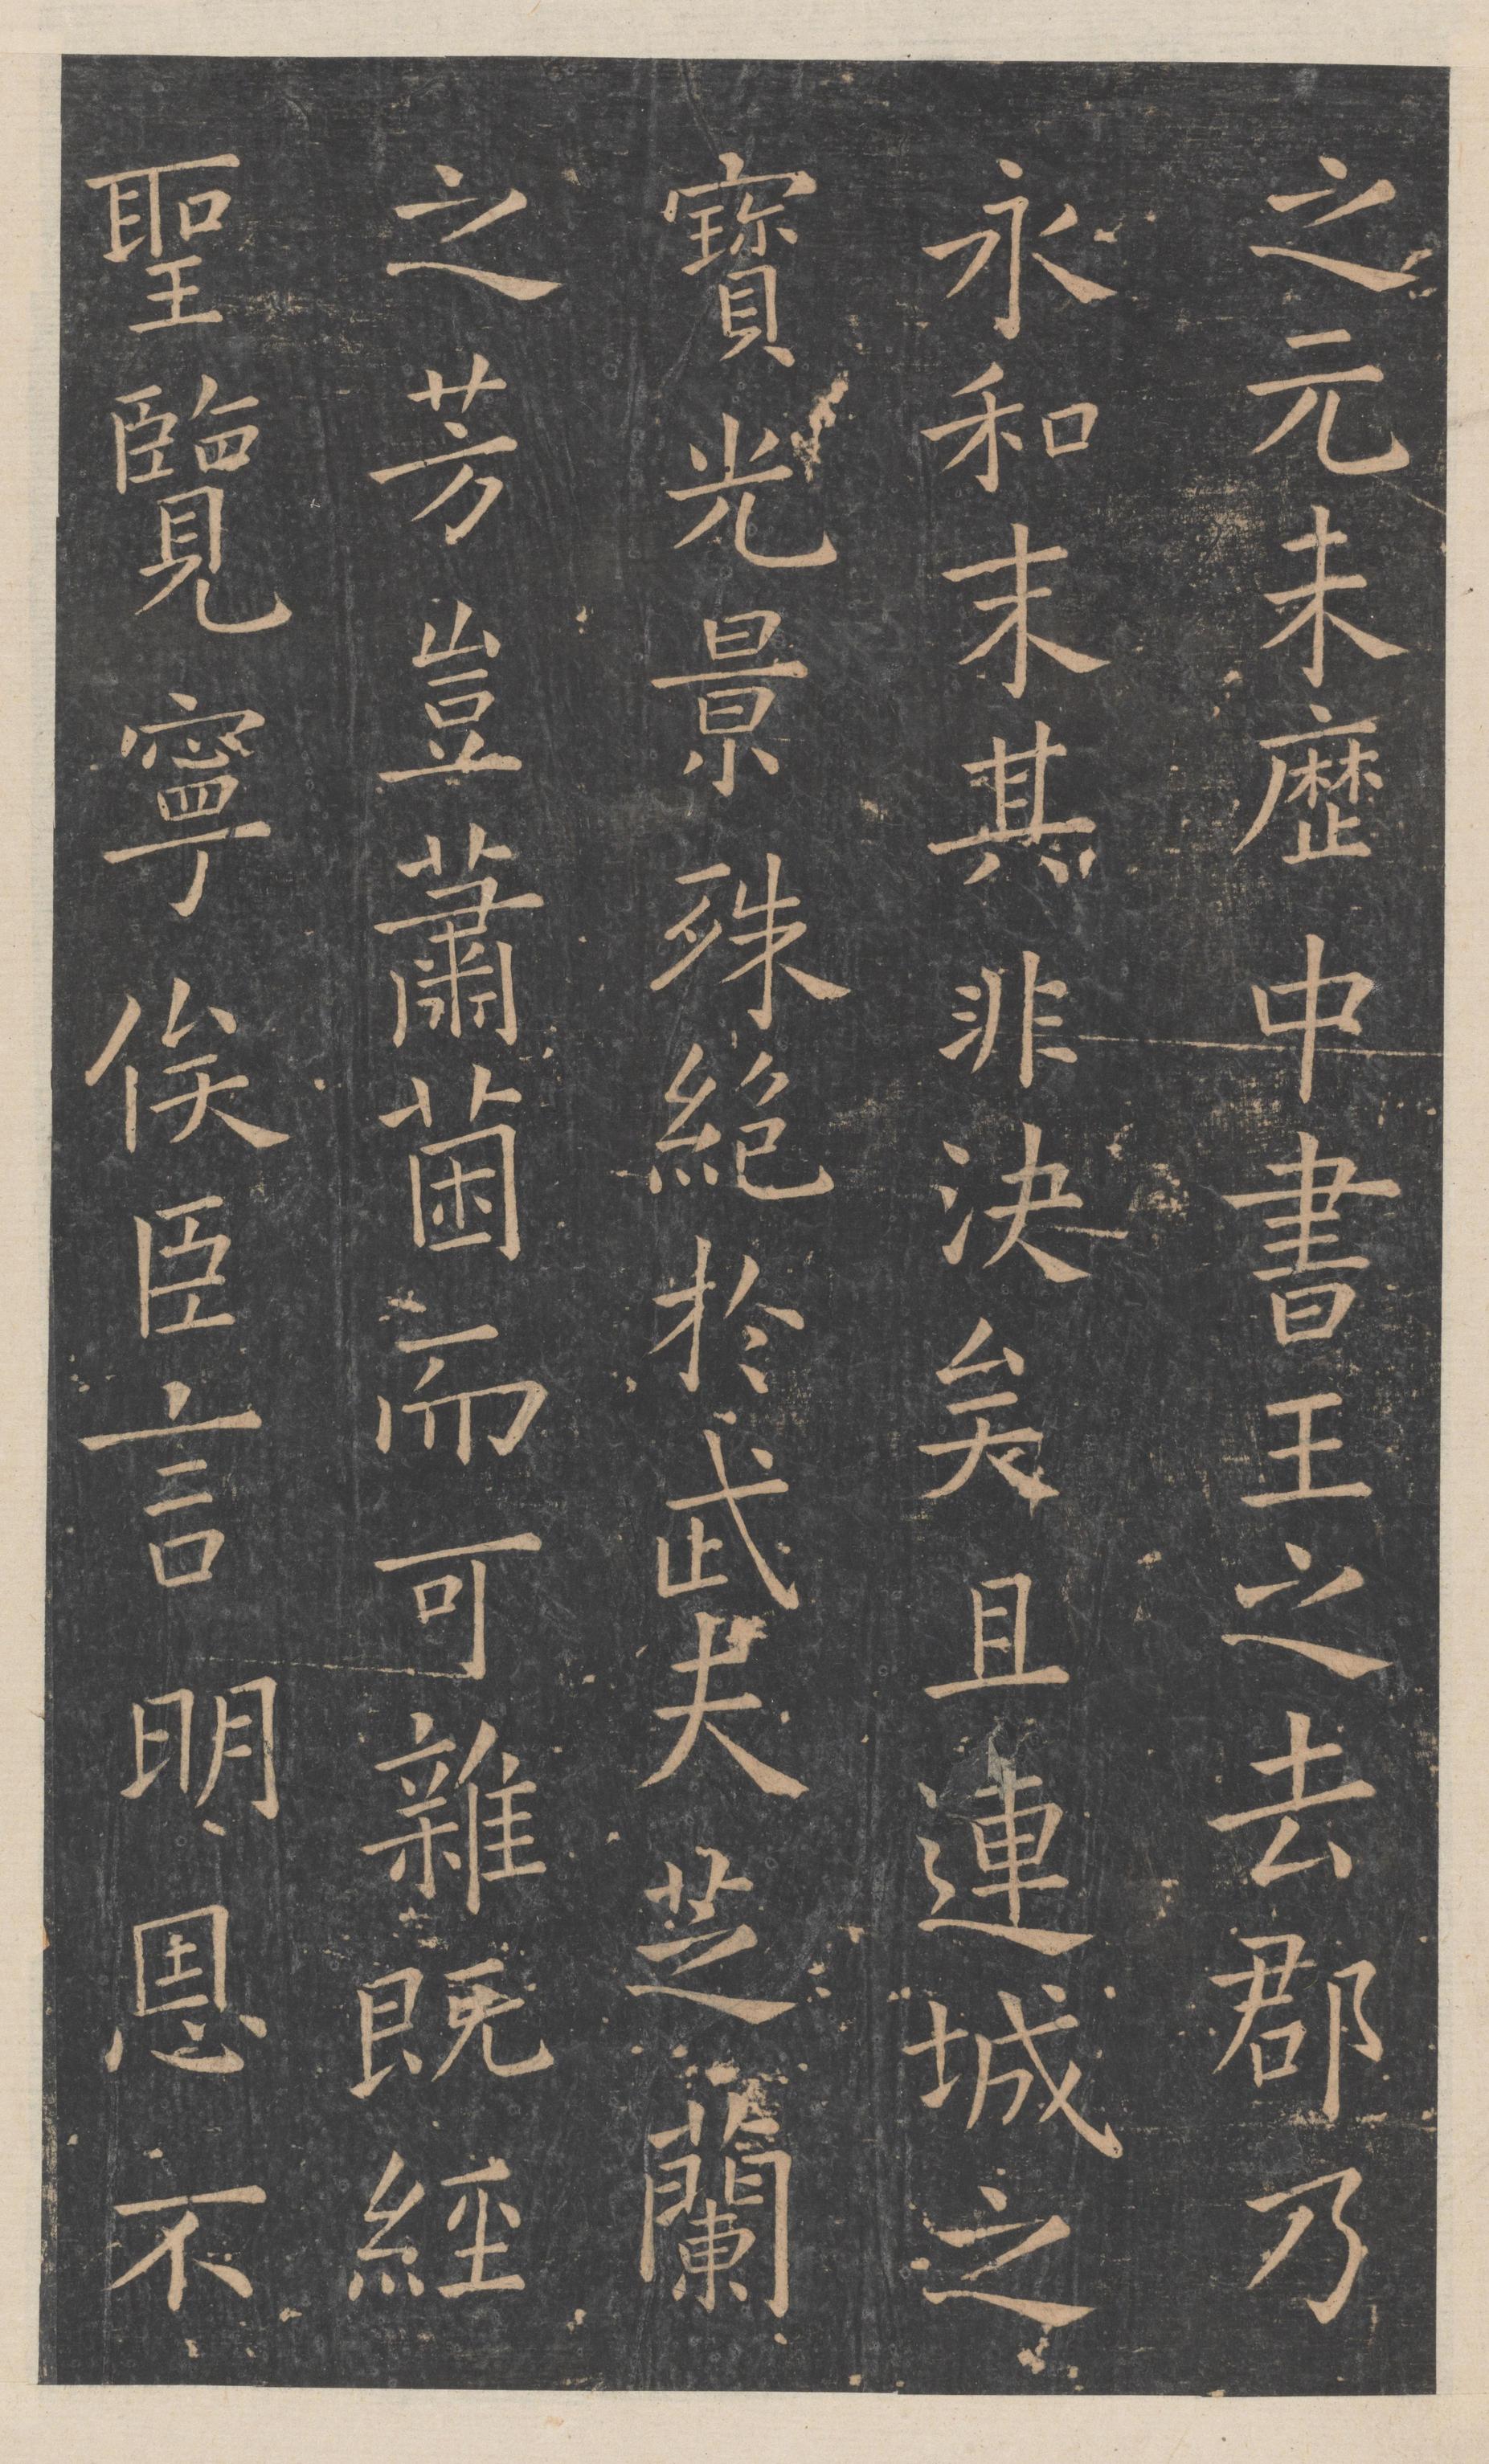 之元未歷中書王之去郡乃
永和末其非決矣且連城之
寶光景殊絕於武夫芝蘭
之芳豈蕭茵而可雜既經
聖覽寧俟臣言明恩不